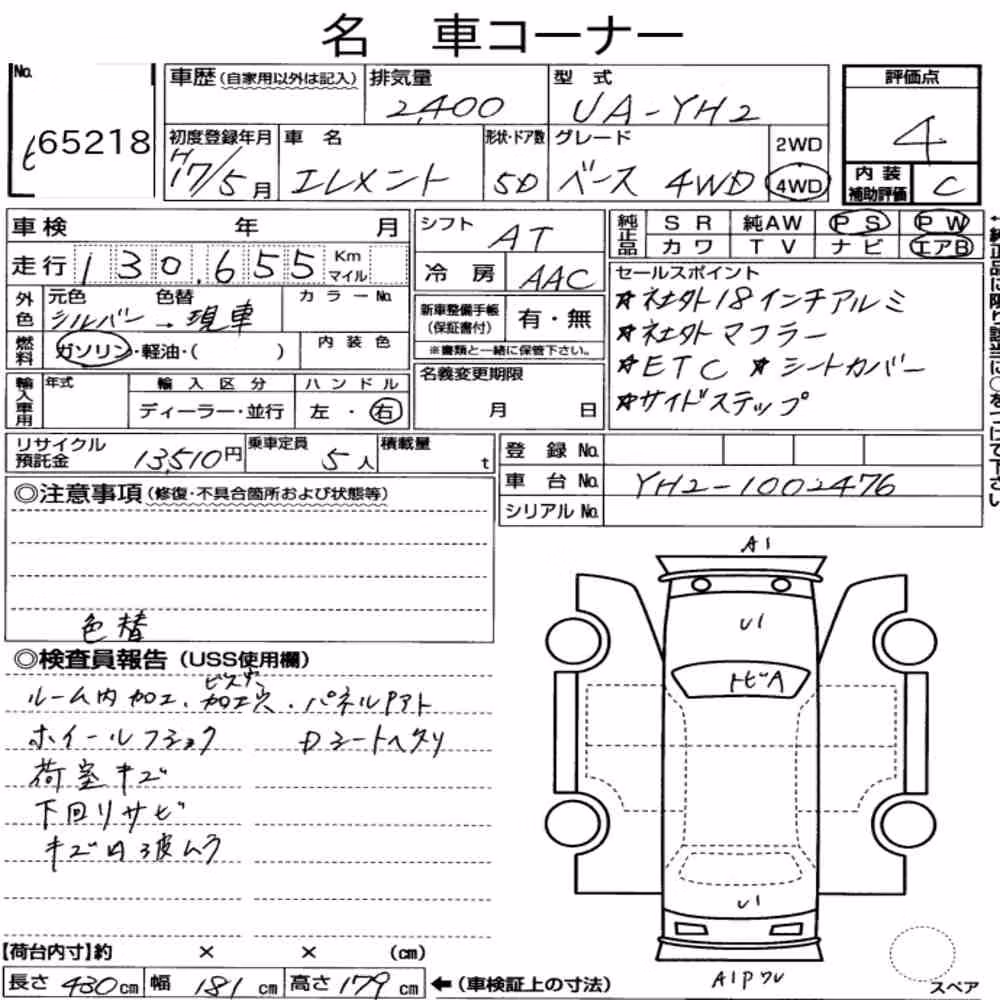 名 車コーナー
No.
65218
車歴(自家用以外は記入) 排気量 型 式 評価点
2,400 UA-YH2 4
初度登録年月 車 名 形状・ドア数 グレード 2WD
H17/5月 エレメント 5D ベース 4WD 4WD
内 装 補助評価 C
車検 年 月
走行 130,655 Km マイル
外色 元色 シルバー → 色替 現車 カラーNo.
燃料 ガソリン・軽油・( ) 内 装 色
輸入車用 年式 輸 入 区 分 ハ ン ド ル
ディーラー・並行 左 ・ 右
シフト AT
冷 房 AAC
新車整備手帳 (保証書付) 有・無
※書類と一緒に保管下さい。
名義変更期限
月 日
純正品 S R 純AW P S P W
カ ワ T V ナ ビ エアB
セールスポイント
★社外18インチアルミ
★社外マフラー
★ETC ★シートカバー
★サイドステップ
リサイクル預託金 13,510円 乗車定員 5人 積載量 t
登 録 No.
車 台 No. YH2-1002476
シリアル No.
◎注意事項(修復・不具合箇所および状態等)
色替
◎検査員報告(USS使用欄)
ルーム内加工、ビス穴 加工穴、パネルPアト
ホイールフショク Dシートヘタリ
荷室キズ
下回りサビ
キズ凹
A1
U1
トビA
U1
A1P
スペア
【荷台内寸】約 × × (cm)
長さ 430cm 幅 181cm 高さ 179cm ←(車検証上の寸法)